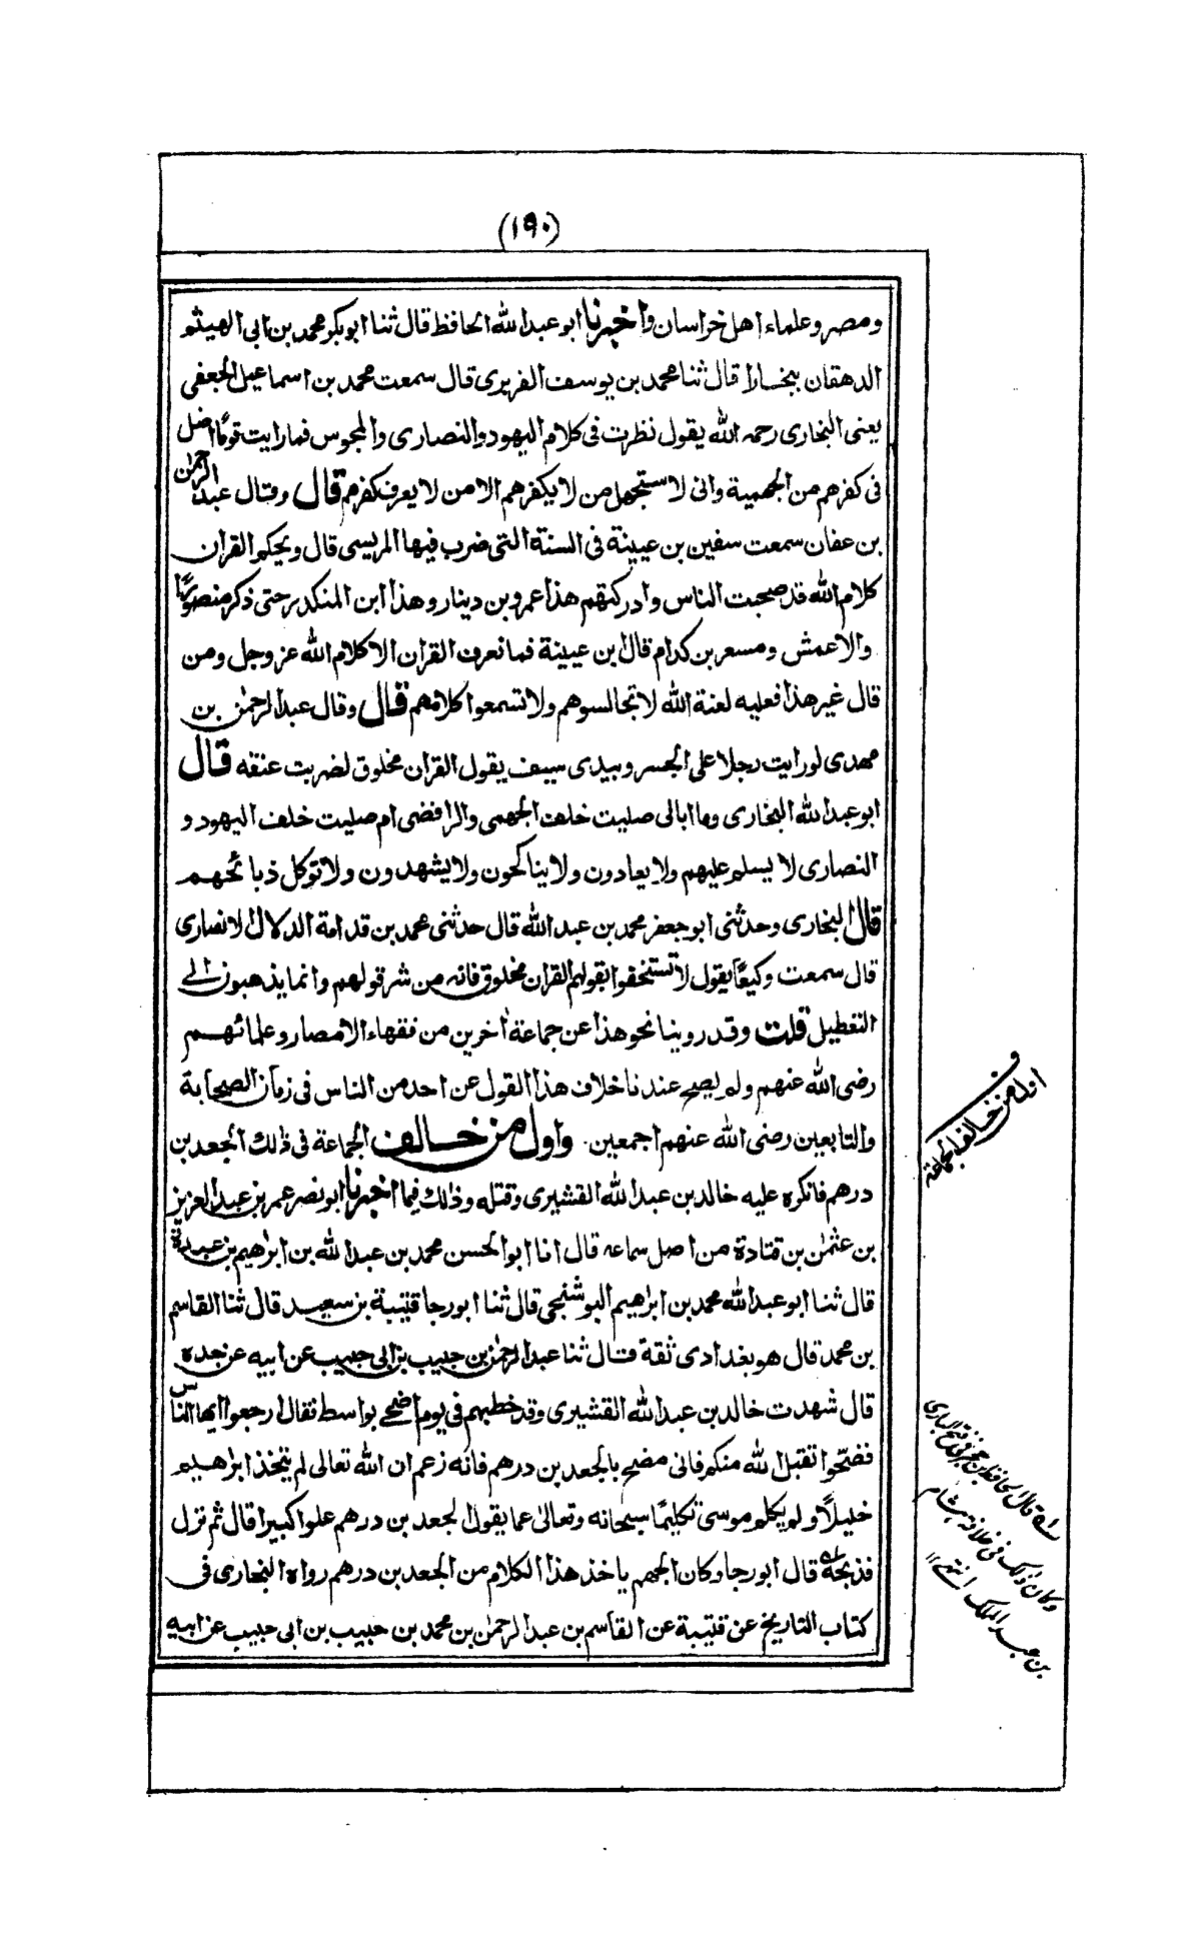 (١٩٠)
ومصر وعلماء اهل خراسان واخبرنا ابو عبد الله الحافظ قال ثنا ابو بكر محمد بن ابى الهيثم
الدهقان ببخارا قال ثنا محمد بن يوسف الفريرى قال سمعت محمد بن اسماعيل الجعفى
يعنى البخارى رحمه الله يقول نظرت فى كلام اليهود والنصارى والمجوس فما رايت قومًا اضل
فى كفرهم من الجهمية وانى لاستجهل من لا يكفرهم الا من لا يعرف كفرهم قال وقال عبد الرحمٰن
بن عفان سمعت سفين بن عيينة فى السنة التى ضرب فيها المريسى قال ويحكم القران
كلام الله قد صحبت الناس وادركتهم هذا عمرو بن دينار وهذا ابن المنكدر حتى ذكر منصورًا
والاعمش ومسعر بن كدام قال ابن عيينة فما نعرف القران الا كلام الله عز وجل ومن
قال غير هذا فعليه لعنة الله لا تجالسوهم ولا تسمعوا كلامهم قال وقال عبد الرحمٰن بن
مهدى لو رايت رجلا على الجسر وبيدى سيف يقول القران مخلوق لضربت عنقه قال
ابو عبد الله البخارى وما ابالى صليت خلف الجهمى والرافضى ام صليت خلف اليهود و
النصارى لا يسلم عليهم ولا يعادون ولا يناكحون ولا يشهدون ولا توكل ذبائحهم
قال البخارى وحدثنى ابو جعفر محمد بن عبد الله قال حدثنى محمد بن قدامة الدلال الانصارى
قال سمعت وكيعًا يقول لا تستخفوا بقولهم القران مخلوق فانه من شر قولهم وانما يذهبون الى
التعطيل قلت وقد روينا نحو هذا عن جماعة اٰخرين من فقهاء الامصار وعلمائهم
رضى الله عنهم ولم يصح عندنا خلاف هذا القول عن احد من الناس فى زمان الصحابة
والتابعين رضى الله عنهم اجمعين. واول من خالف الجماعة فى ذالك الجعد بن
درهم فانكره عليه خالد بن عبد الله القشيرى وقتله وذالك فيما اخبرنا ابو نصر عمر بن عبد العزيز
بن عثمٰن بن قتادة من اصل سماعه قال انا ابو الحسن محمد بن عبد الله بن ابراهيم بن عبدة
قال ثنا ابو عبد الله محمد بن ابراهيم البوشنجى قال ثنا ابو رجا قتيبة بن سعيد قال ثنا القاسم
بن محمد قال هو بغدادى ثقة قال ثنا عبد الرحمٰن بن حبيب بن ابى حبيب عن ابيه عن جده
قال شهدت خالد بن عبد الله القشيرى وقد خطبهم فى يوم اضحى بواسط فقال ارجعوا ايها الناس
فضحّوا تقبل الله منكم فانى مضح بالجعد بن درهم فانه زعم ان الله تعالى لم يتخذ ابراهيم
خليلًا ولم يكلم موسى تكليمًا سبحانه وتعالى عما يقول الجعد بن درهم علوا كبيرا قال ثم نزل
فذبحه قال ابو رجا وكان الجهم ياخذ هذا الكلام من الجعد بن درهم رواه البخارى فى
كتاب التاريخ عن قتيبة عن القاسم بن عبد الرحمٰن بن محمد بن حبيب بن ابى حبيب عن ابيه
ف
اول من خالف الجماعة
قال الحافظ بن حجر فى فتح البارى
وكان ذلك فى خلافة هشام
بن عبد الملك انتهى ١٢